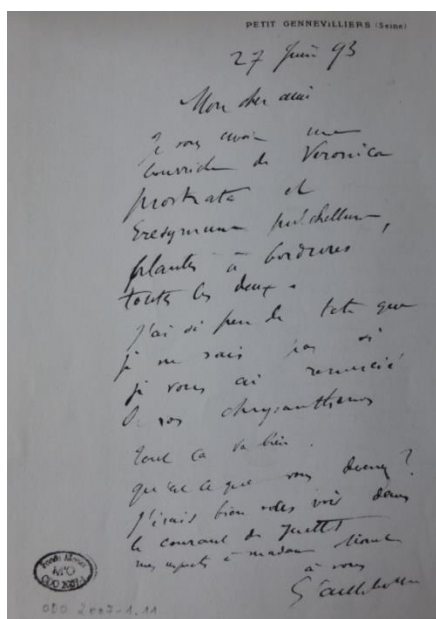 PETIT GENNEVILLIERS (Seine)
27 Juin 93
Mon cher ami
Je vous envoie une
de Veronica
prostrata et
Eresymum pulchellum,
plantes à bordures,
toutes les deux.
J'ai si peu de tête que
je ne sais pas si
je vous ai remercié
de vos chrysanthemes
tout ça va bien.
qu'est ce que vous devenez ?
J'irais bien vous voir dans
le courant de Juillet
mes respects à madame Monet
à vous
G Caillebotte
Fonds Monet
M'O
ODO 2007-1
ODO 2007-1.11